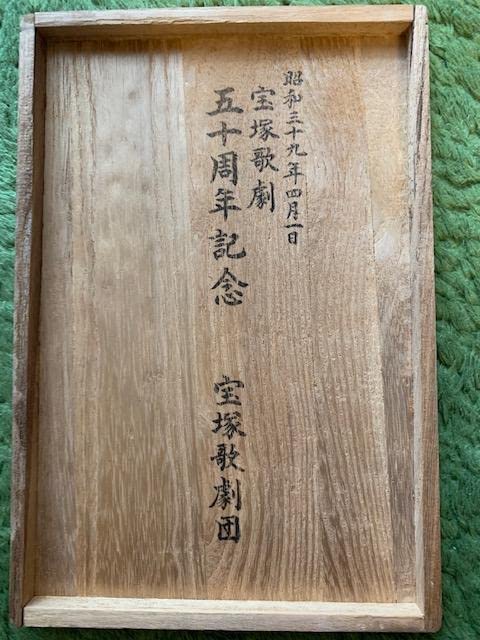 昭和三十九年四月一日
宝塚歌劇
五十周年記念
宝塚歌劇団